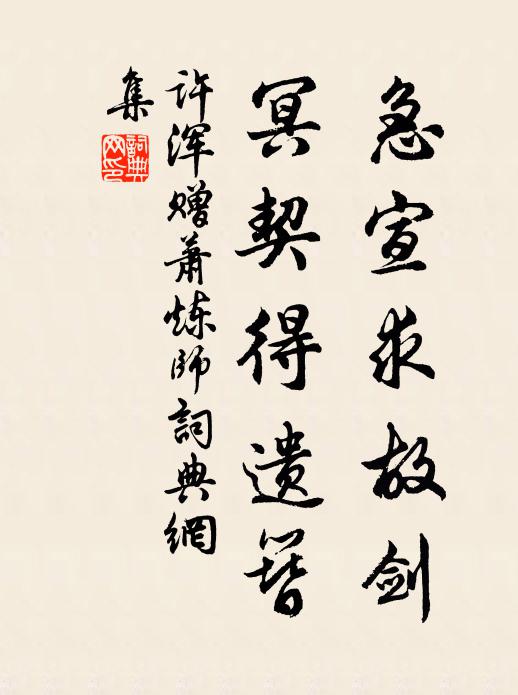 急宣求故剑
冥契得遗簪
许浑赠萧炼师词典网
集
词典网印